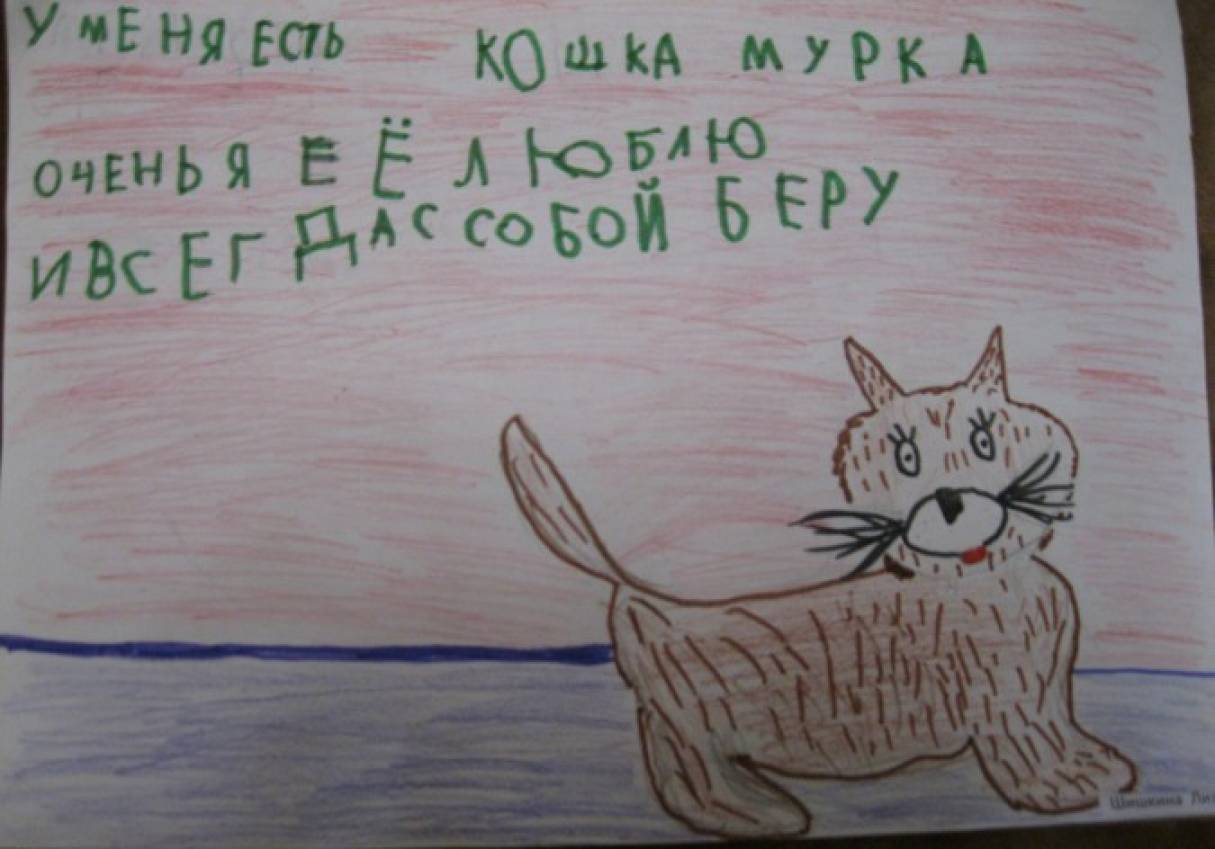 У МЕНЯ ЕСТЬ КОШКА МУРКА
ОЧЕНЬ Я ЕЁ ЛЮБЛЮ
И ВСЕГДА С СОБОЙ БЕРУ
Шишкина